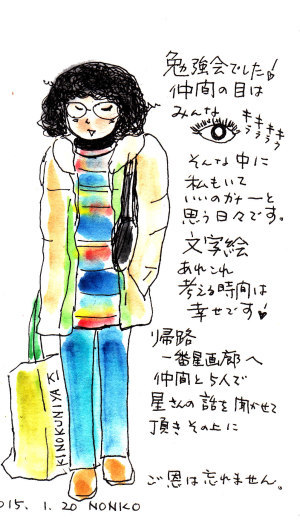 勉強会でした!
仲間の目は
みんな
キラキラ
そんな中に
私もいて
いいのかナーと
思う日々です。
文字絵
あれこれ
考える時間は
幸せです
帰路
一番星画廊へ
仲間と5人で
星さんの話を聞かせて
頂きその上に
ご恩は忘れません。
KINOKUNIYA KI
015. 1. 20 NONKO